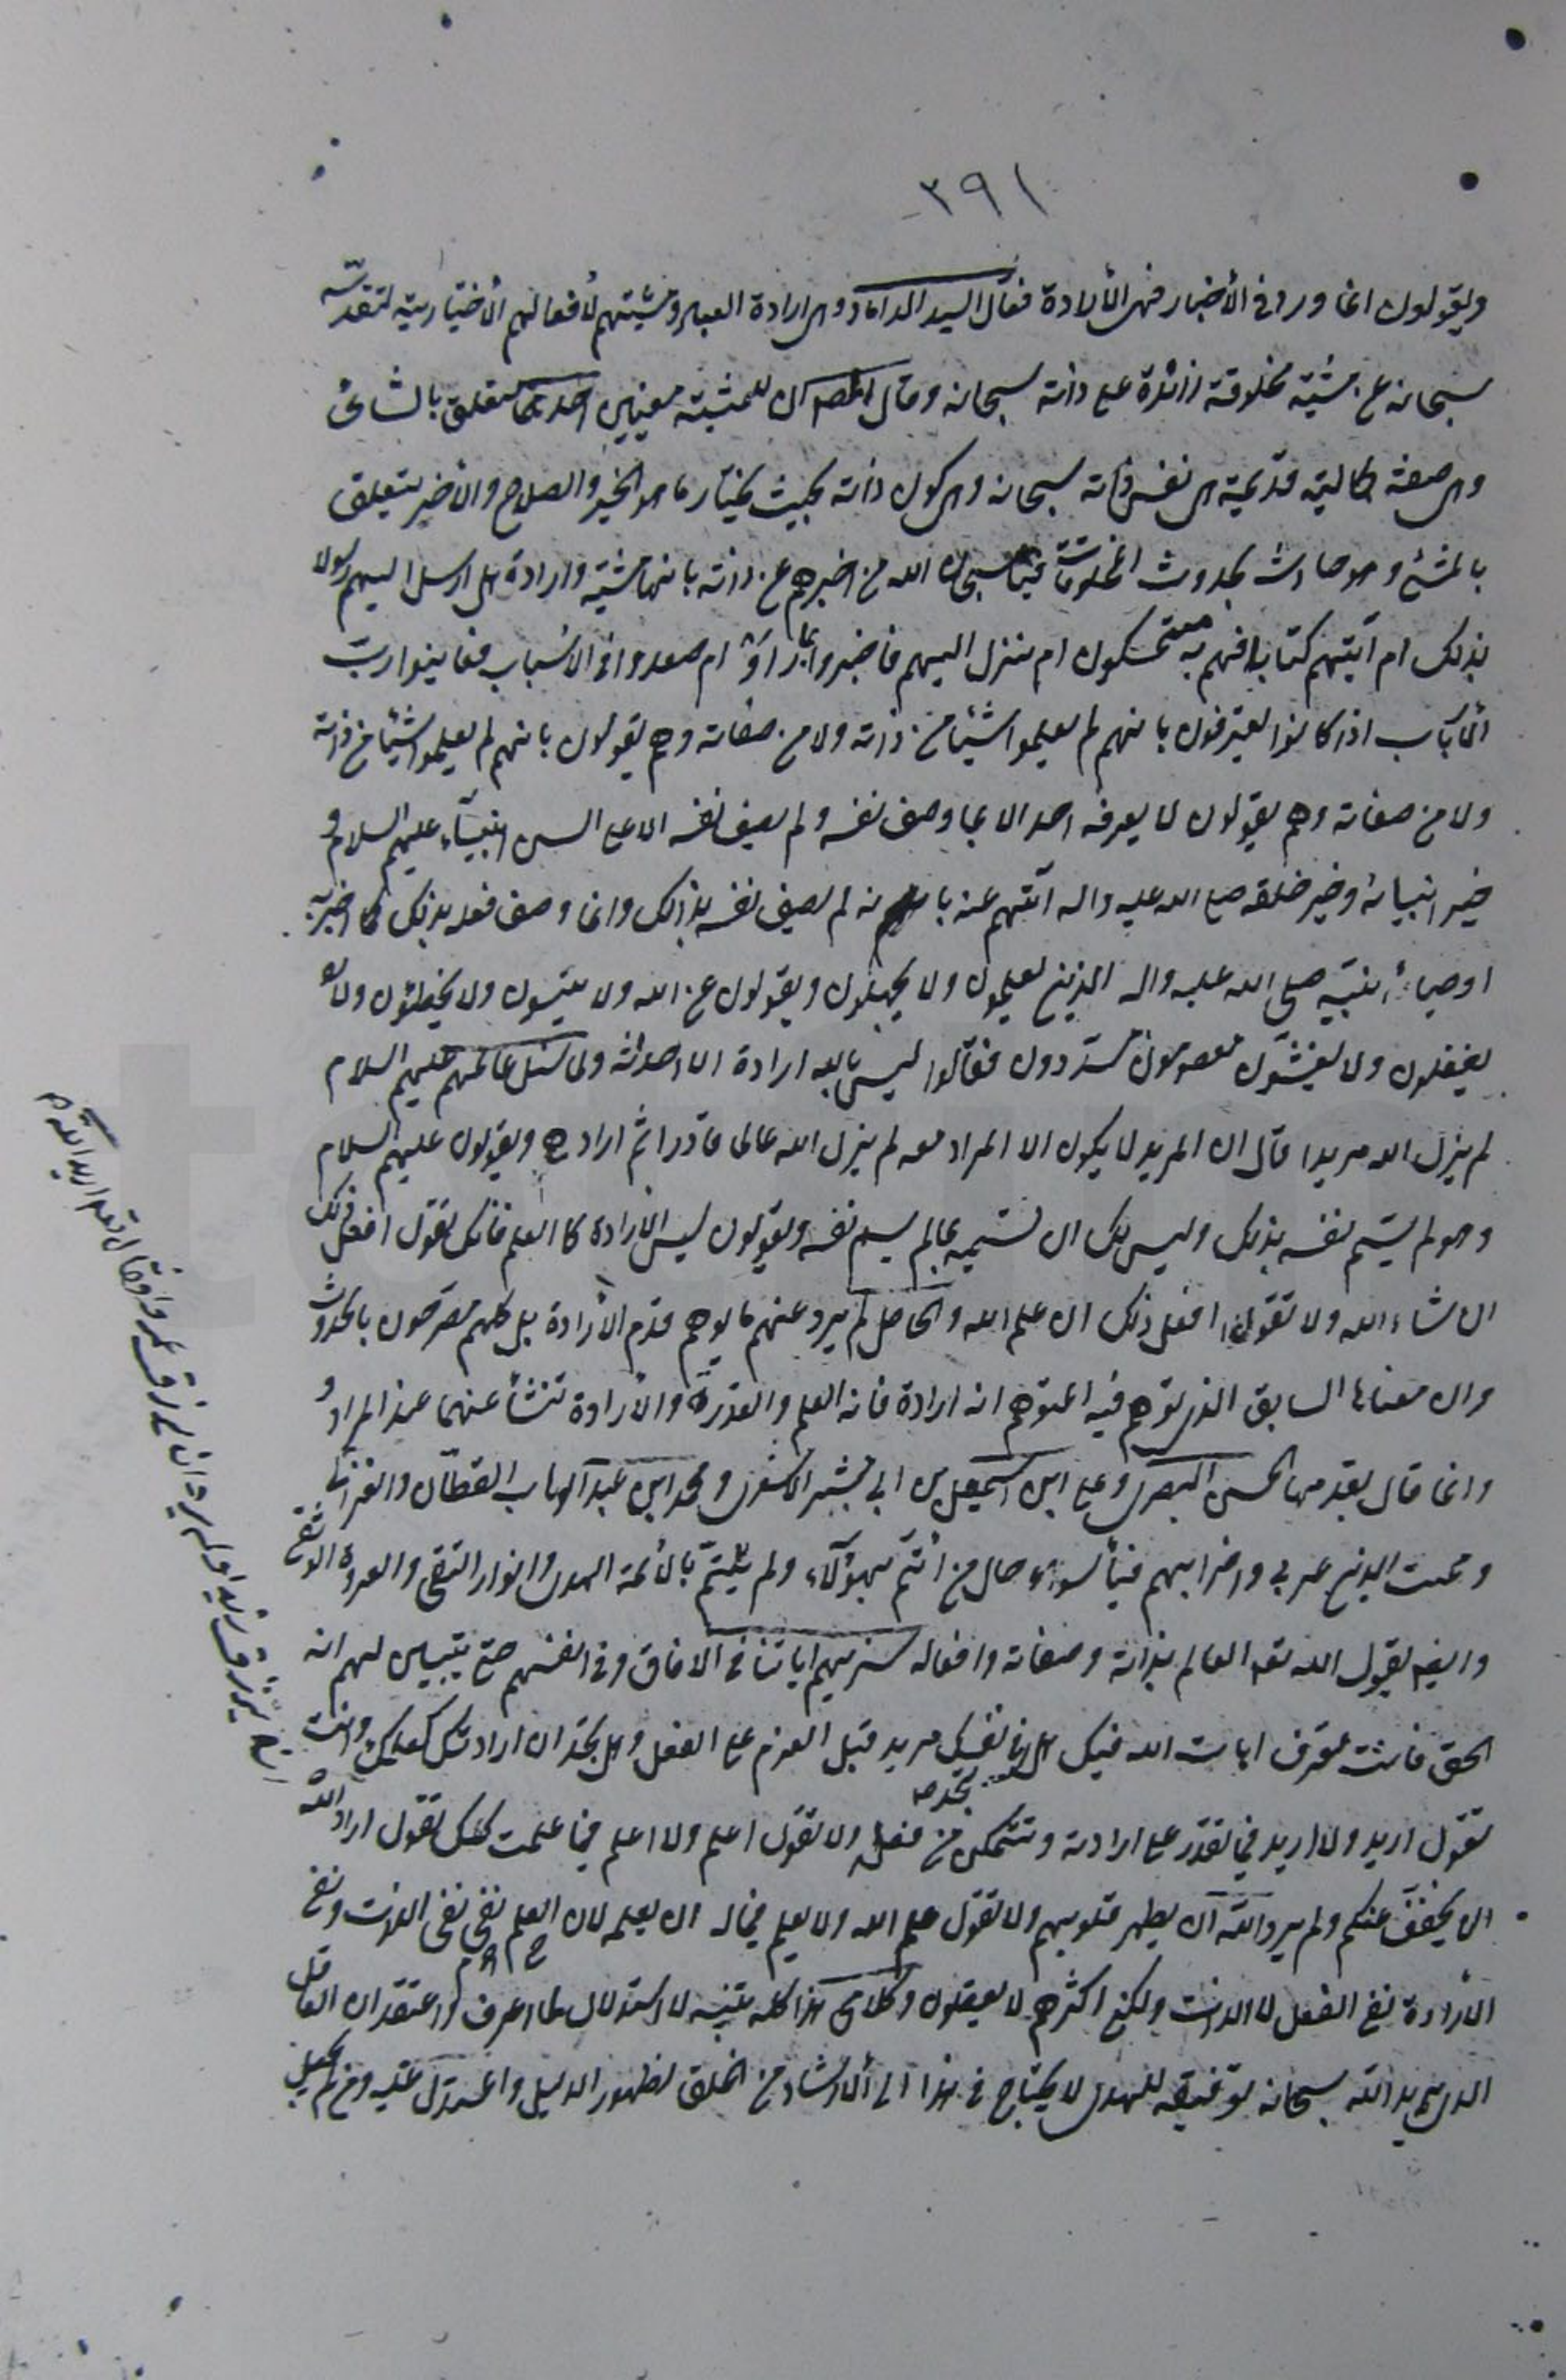 ٣٩١
ويقولون انما ورد فى الأخبار فهى الأرادة فقال السيد الداماد وهى ارادة العباد ومشيتهم لأفعالهم الأختيارية لتقدسه
سبحانه عن مشية مخلوقة زائدة على ذاته سبحانه وقال المصه ان للمشية معنيين احدهما متعلق بالشائى
وهى صفة كمالية قديمة هى نفس ذاته سبحانه وهى كون ذاته بحيث يختار ما هو الخير والصلاح والاخر يتعلق
بالمشئ وهو حادث بحدوث المخلوقات فيا سبحان الله من اخبرهم عن ذاته بانها مشية وارادة هل ارسل اليهم رسولا
بذلك ام آتيهم كتابا فهم به مستمسكون ام منزل اليهم فاخبروا بما راوا ام صعدوا فى الاسباب فعاينوا رب
الأرباب اذا كانوا يعترفون بانهم لم يعلموا شيئا من ذاته ولا من صفاته وهم يقولون بانهم لم يعلموا شيئا من ذاته
ولا من صفاته وهم يقولون لا يعرفه احد الا بما وصف نفسه ولم يصف نفسه الا على السن انبيآء عليهم السلام و
خير انبيائه وخير خلقه صلى الله عليه واله آتيهم عنه بانه لم يصف نفسه بذلك وانما وصف فعله بذلك كما اخبر به
اوصياء نبيه صلى الله عليه واله الذين يعلمون ولا يجهلون ويقولون عن الله ولا ينسون ولا يخطئون ولا
يغفلون ولا يغشون معصومون مسددون فقالوا ليس لله ارادة الا احداثه ولما سئل عالمهم عليهم السلام
لم يزل الله مريدا قال ان المريد لا يكون الا المراد معه لم يزل الله عالما قادرا ثم اراد ويقولون عليهم السلام
وهو لم يسم نفسه بذلك وليس لك ان تسميه بما لم يسم نفسه ويقولون ليس الأرادة كالعلم فانك تقول افعل ذلك
ان شاء الله ولا تقول افعل ذلك ان علم الله والحاصل لم يرد عنهم ما يوهم قدم الأرادة بل كلهم مصرحون بالحدوث
وان معناها السابق الذى توهم فيه المتوهم انه ارادة فانه العلم والقدرة والأرادة تنشأ عنهما عند المراد و
وانما قال بقدمها الحسن البصرى وعلى ابن اسمعيل بن ابى بشير الاشعرى ومحمد ابن عبد الوهاب القطان والغزالى
ومميت الدين عربى واضرابهم فيا سواء حال من ائتم بهؤلآء ولم يأتم بالأئمة الهدى وانوار التقى والعروة الوثقى
وايضه يقول الله تعه العالم بذاته وصفاته وافعاله سنريهم اياتنا فى الافاق وفى انفسهم حتى يتبين لهم انه
الحق فانت تعرف ايات الله فيك هل فى نفسك مريد قبل العزم على الفعل وهل تجد ان ارادتك كعلمك وانت
تقول اريد ولا اريد فيما تقدر على ارادته وتتمكن من فعله ولا تقول اعلم ولا اعلم فيما علمت كك تقول اراد الله
ان يخفف عنكم ولم يرد الله ان يطهر قلوبهم ولا تقول علم الله ولا يعلم فيما له ان يعلمه لان نفى العلم نفى الذات ونفى
الأرادة نفى الفعل لا الذات ولكن اكثرهم لا يعقلون وكلامى هذا كله تنبيه لا استدلال لما اعرف واعتقد ان العاقل
الذى يريد الله سبحانه توفيقه للهدى لا يحتاج فى هذا الى الأرشاد من الخلق لظهور الدليل والمستدل عليه ومن لم يجعل